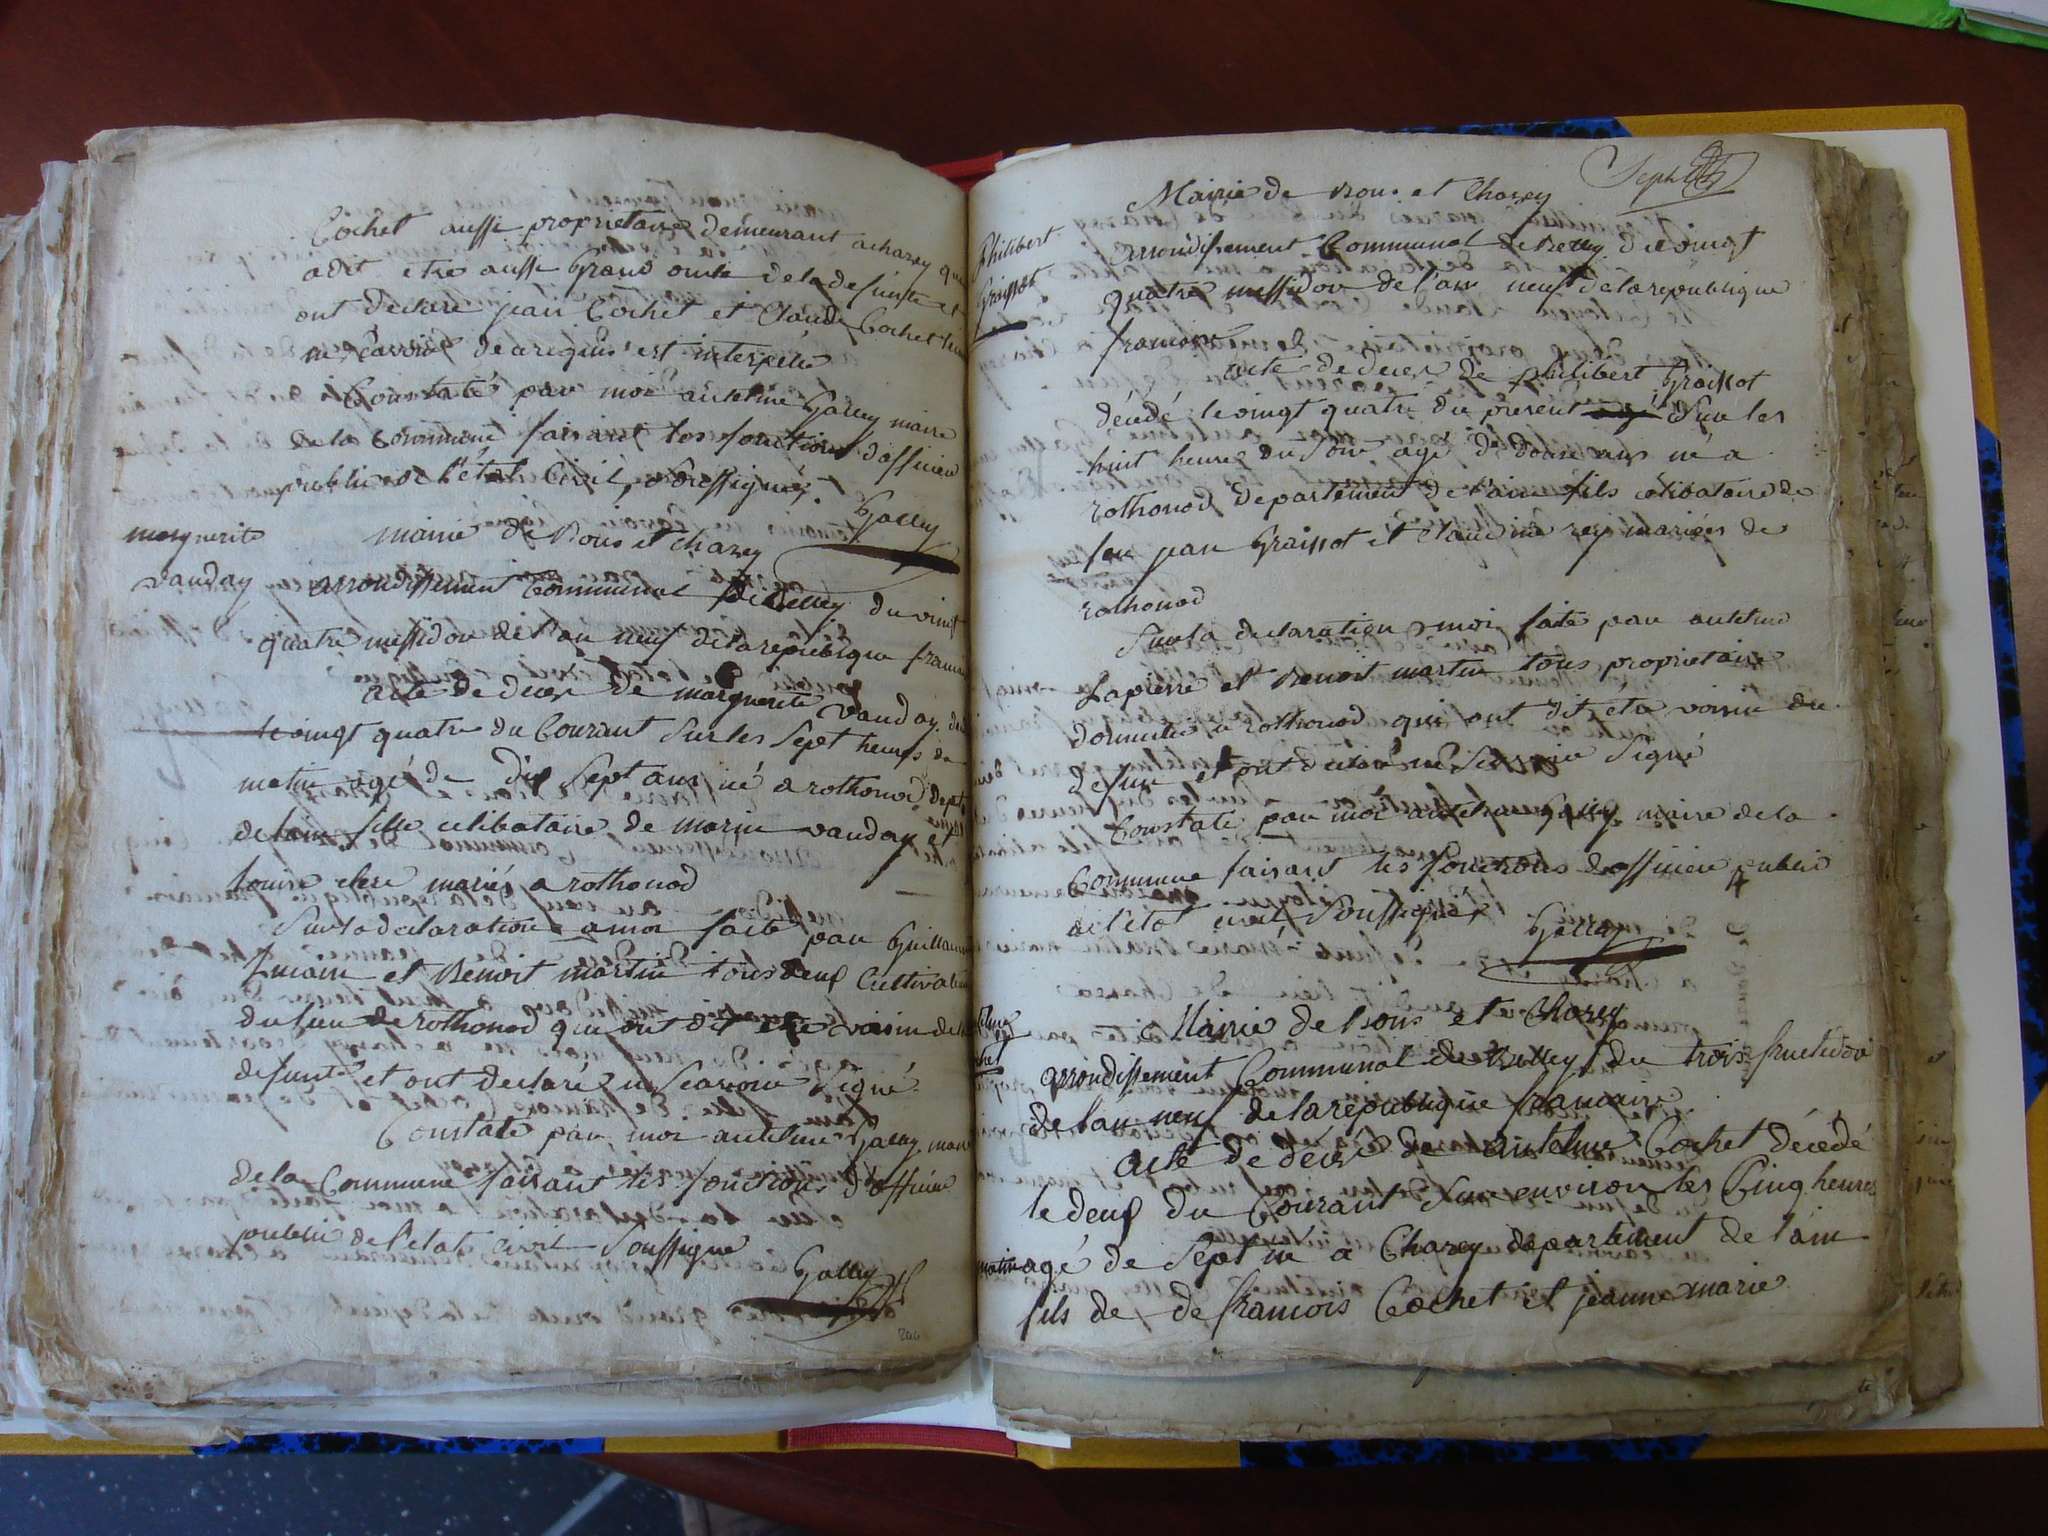 Cochet aussi propriétaire demeurant a charey qui
a dit etre aussi Grand oncle de la defunte et
ont declaré jean Cochet et Claude Cochet
ne scavoir de a requis est interpelle
Constaté par moi antelme Galley maire
de la commune faisant les fonctions d'officier
public de l'état Civil, soussigné.
Galley
marguerite
vauday
mairie de Bons et charey
arrondissement Communal de Belley du vingt
quatre messidor de l'an neuf de la republique
acte de deces de marguerite vauday
le vingt quatre du Courant sur les sept heures du
matin agé de dix sept ans né a rothonod
de l'ain fille celibataire de marin vauday et
louise clere mariés a rothonod
sur la declaration a moi faite par
et Benoit martin tous deux
du lieu de rothonod qui ont dit etre voisin de
defunte et ont declaré ne scavoir signé
Constaté par moi antelme Galley
de la Commune faisant les fonctions d'officier
public de l'etat civil soussigné
Galley
Mairie de Bons et Charey
Philibert
Graissot
arrondissement Communal de Belley du vingt
quatre messidor de l'an neuf de la republique
francoise
acte de deces de philibert Graissot
décédé le vingt quatre du present agé sur les
huit heures du soir agé de douze ans né a
rothonod departement de l'ain fils celibataire de
feu jean Graissot et Claudine rey mariés de
rothonod
Sur la declaration a moi faite par antelme
Lapierre et Benoit martin tous proprietaire
domicilié a rothonod qui ont dit étre voisin du
defunt et ont declaré ne scavoir signé
Constaté par moi antelme Galley maire de la
Commune faisant les fonctions d'officier public
de l'état civil soussigné
Galley
Mairie de bons et Charey
arrondissement Communal de Belley du trois fructidor
de l'an neuf de la republique francaise
acte de déces de antelme Cochet décédé
le deux du Courant sur environ les Cinq heures
matin agé de sept né a Charey departement de l'ain
fils de de francois Cochet et jeanne marie